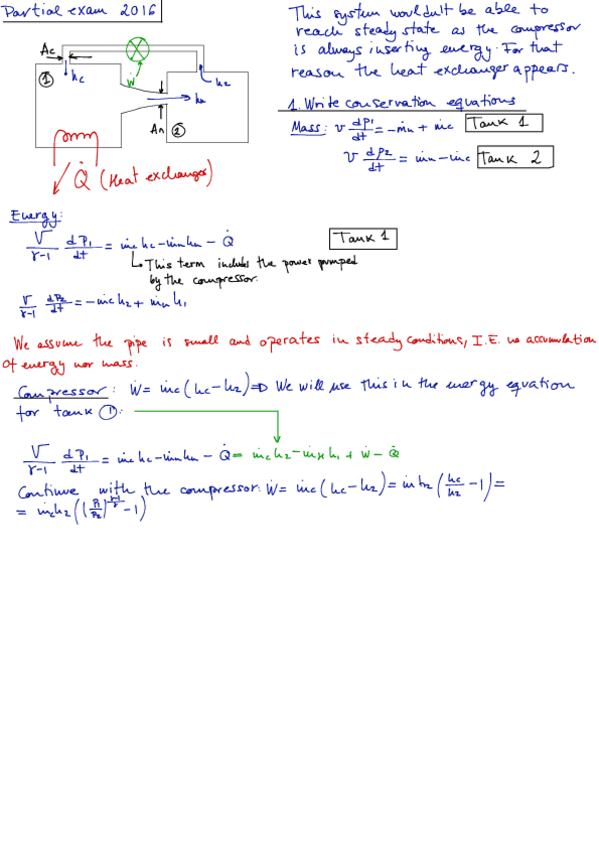 Partial exam 2016
This system wouldn't be able to
reach steady state as the compressor
is always inserting energy. For that
reason the heat exchanger appears.
Ac
① hc
W
h2
hn
An ②
Q̇ (Heat exchanger)
1. Write conservation equations
Mass: V dρ1/dt = -ṁn + ṁc Tank 1
V dρ2/dt = ṁn - ṁc Tank 2
Energy:
V/(γ-1) dP1/dt = ṁc hc - ṁn hn - Q̇ Tank 1
↳ This term includes the power pumped
by the compressor.
V/(γ-1) dP2/dt = -ṁc h2 + ṁn h1
We assume the pipe is small and operates in steady conditions, I.E. no accumulation
of energy nor mass.
Compressor: Ẇ = ṁc (hc - h2) ⇒ We will use this in the energy equation
for tank ①:
V/(γ-1) dP1/dt = ṁc hc - ṁn hn - Q̇ = ṁc h2 - ṁn h1 + Ẇ - Q̇
Continue with the compressor: Ẇ = ṁc (hc - h2) = ṁ h2 (hc/h2 - 1) =
= ṁc h2 ((P1/P2)^((γ-1)/γ) - 1)